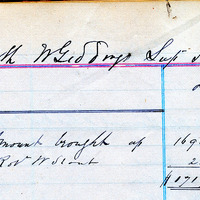 th W Giddings Supt
Amount brought up 169
Rev W Scout 2
$171